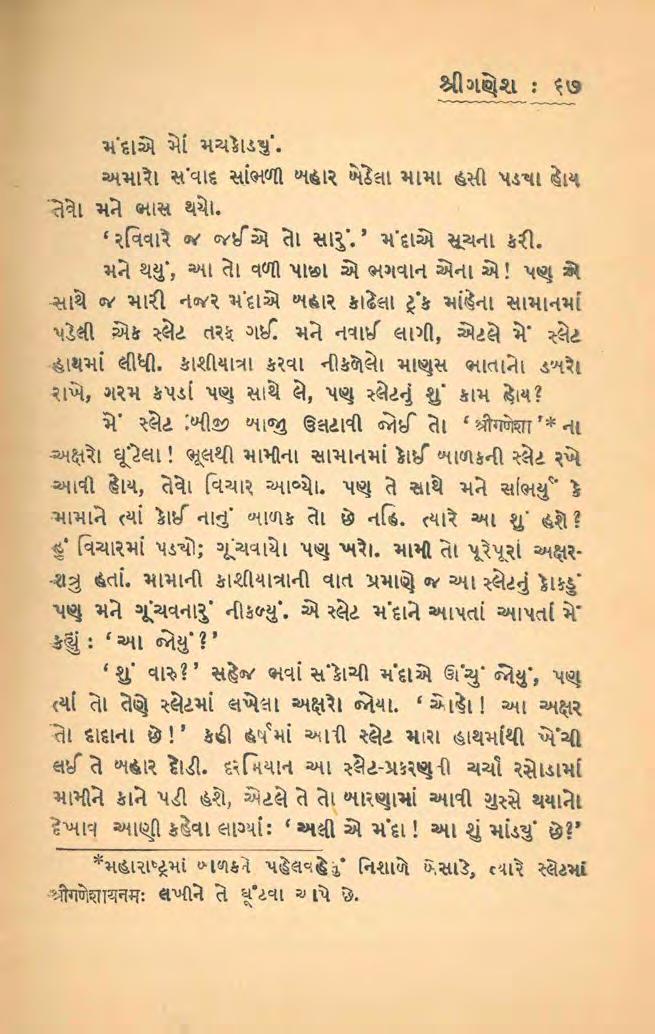 શ્રીગણેશ : ૬૭
મંદાએ મોં મચકોડ્યું.
અમારો સંવાદ સાંભળી બહાર બેઠેલા મામા હસી પડયા હોય
તેવો મને ભાસ થયો.
‘રવિવારે જ જઈએ તો સારું.’ મંદાએ સૂચના કરી.
મને થયું, આ તો વળી પાછા એ ભગવાન એના એ! પણ એ
સાથે જ મારી નજર મંદાએ બહાર કાઢેલા ટ્રંક માંહેના સામાનમાં
પડેલી એક સ્લેટ તરફ ગઈ. મને નવાઈ લાગી, એટલે મેં સ્લેટ
હાથમાં લીધી. કાશીયાત્રા કરવા નીકળેલો માણસ ભાતાનો ડબરો
રાખે, ગરમ કપડાં પણ સાથે લે, પણ સ્લેટનું શું કામ હોય?
મેં સ્લેટ બીજી બાજુ ઉલટાવી જોઈ તો ‘श्रीगणेशा’* ના
અક્ષરો ઘૂંટેલા! ભૂલથી મામીના સામાનમાં કોઈ બાળકની સ્લેટ રખે
આવી હોય, તેવો વિચાર આવ્યો. પણ તે સાથે મને સાંભર્યું કે
મામાને ત્યાં કોઈ નાનું બાળક તો છે નહિ. ત્યારે આ શું હશે?
હું વિચારમાં પડયો; ગૂંચવાયો પણ ખરો. મામી તો પૂરેપૂરાં અક્ષર-
શત્રુ હતાં. મામાની કાશીયાત્રાની વાત પ્રમાણે જ આ સ્લેટનું કોકડું
પણ મને ગૂંચવનારું નીકળ્યું. એ સ્લેટ મંદાને આપતાં આપતાં મેં
કહ્યું : ‘આ જોયું?’
‘શું વારુ?’ સહેજ ભવાં સંકોચી મંદાએ ઊંચું જોયું, પણ
ત્યાં તો તેણે સ્લેટમાં લખેલા અક્ષરો જોયા. ‘ઓહો! આ અક્ષર
તો દાદાના છે!’ કહી હર્ષમાં આવી સ્લેટ મારા હાથમાંથી ખેંચી
લઈ તે બહાર દોડી. દરમિયાન આ સ્લેટ-પ્રકરણની ચર્ચા રસોડામાં
મામીને કાને પડી હશે, એટલે તે તો બારણામાં આવી ગુસ્સે થયાનો
દેખાવ આણી કહેવા લાગ્યાં : ‘અલી એ મંદા! આ શું માંડયું છે?’
*મહારાષ્ટ્રમાં બાળકને પહેલવહેલું નિશાળે બેસાડે, ત્યારે સ્લેટમાં
श्रीगणेशायनमः લખીને તે ઘૂંટવા આપે છે.